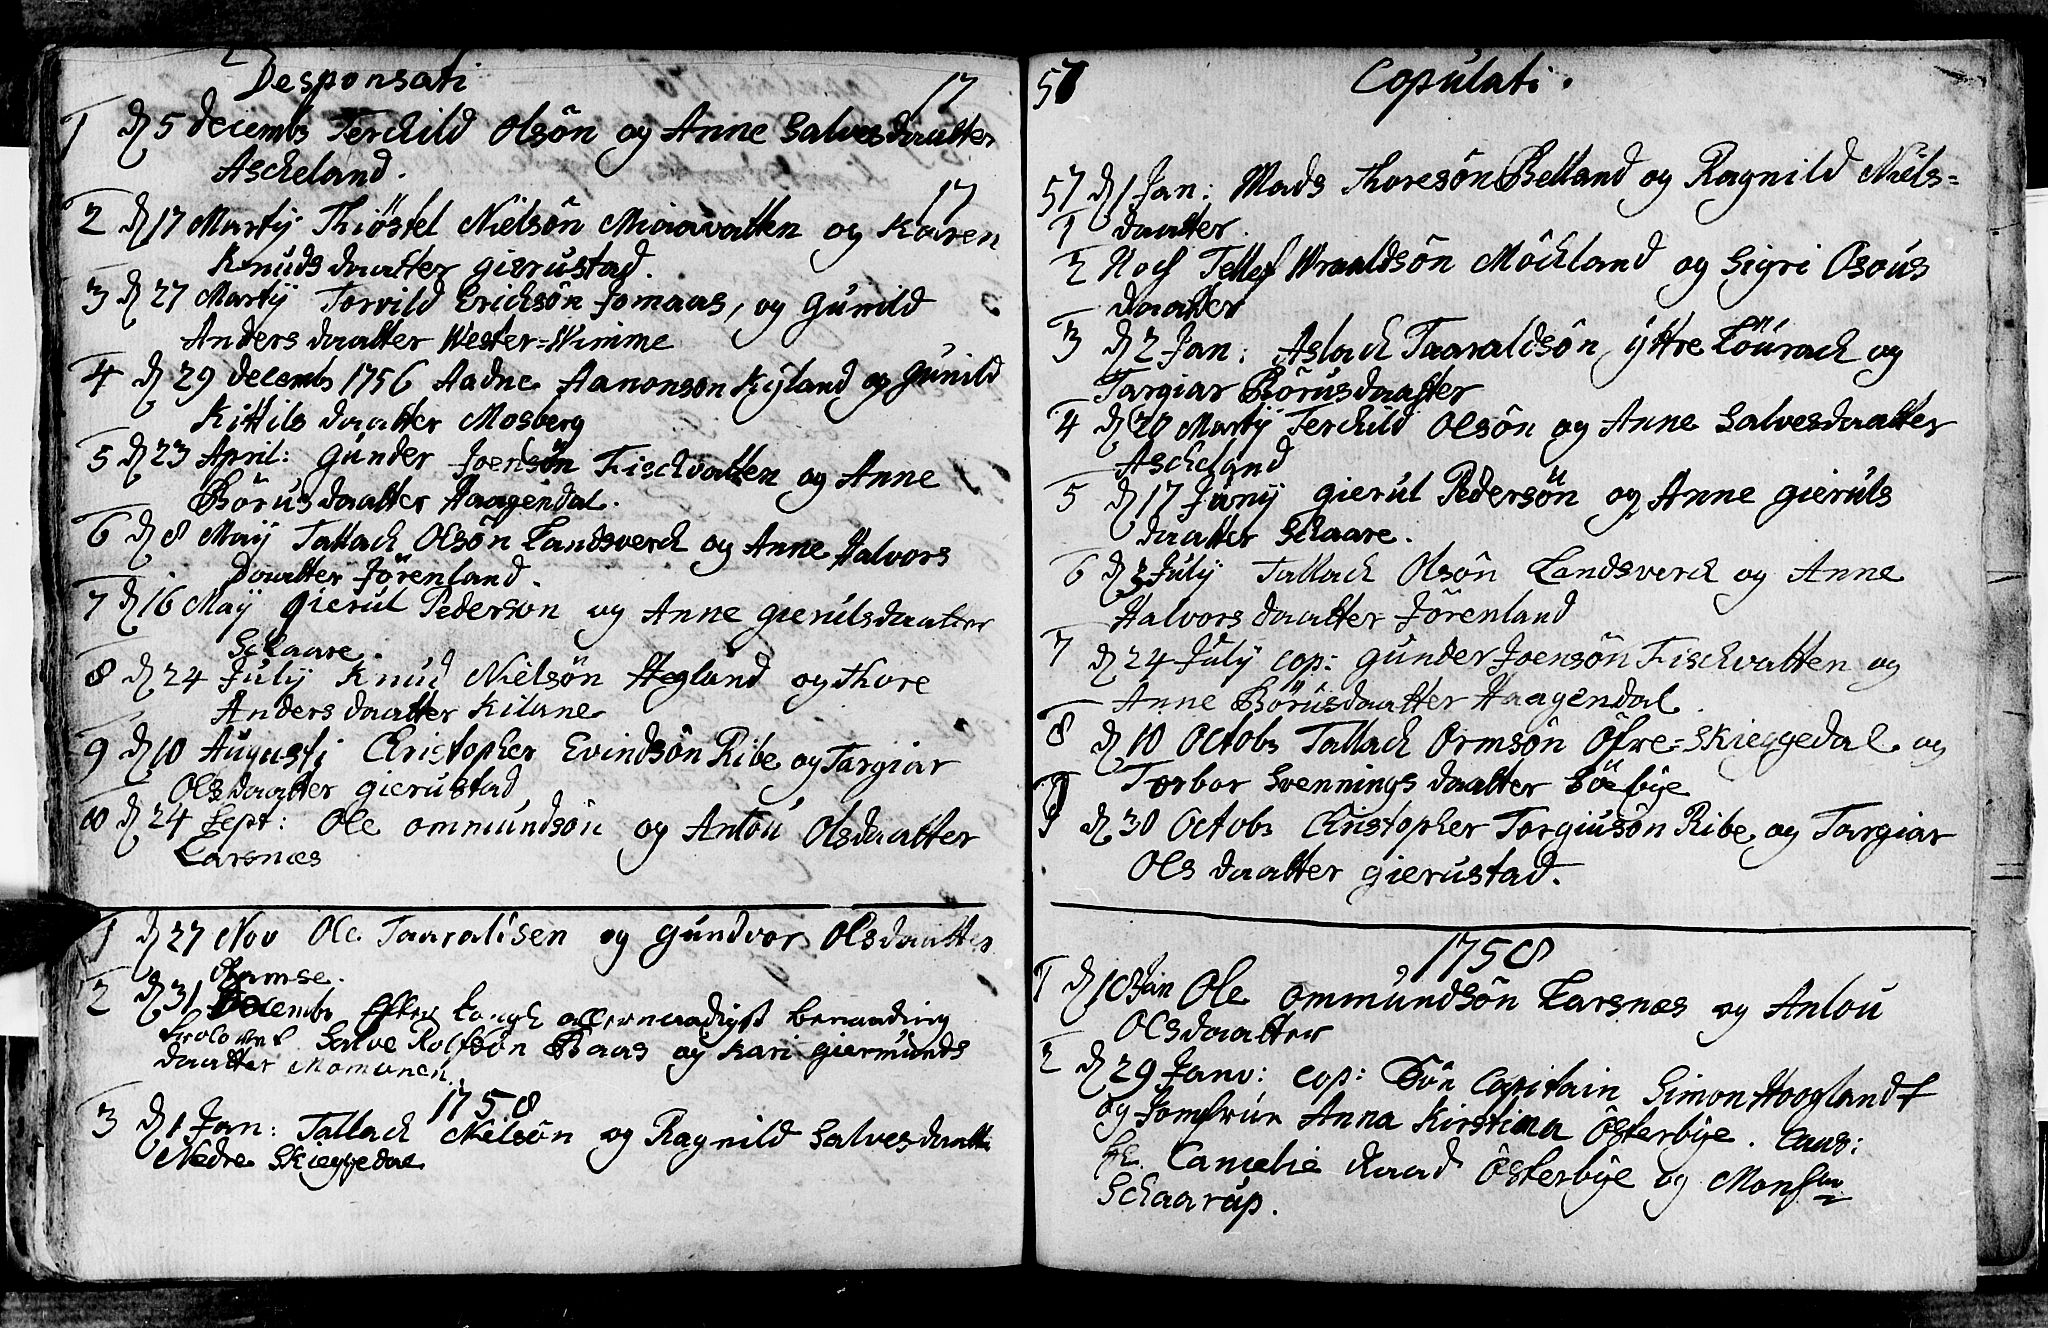 Desponsati 17
1 d 5 decembr Terchild Olsön og Anne Salvesdaatter
Ascheland.
17
2 d 17 Martij Thiöstel Nielsön Miaavatten og Karen
Knuds daatter gierustad.
3 d 27 Martij Torvild Erichsön Jomaas, og Gunild
Anders daatter Wester=Wimme
4 d 29 decembr 1756 Aadne Aanonson Kyland og gunild
Kittils daatter Mosberg
5 d 23 April: Gunder Joensön Fischvatten og Anne
Börus daatter Haagendal.
6 d 8 Maij Tallach Olsön Landsverch og Anne Halvors
Daatter Jörenland.
7 d 16 Maij gierul Pederson og Anne gierulsdaatter
Schaare.
8 d 24 Julij Knud Nielsön Hegland og Thore
Anders daatter Kilane
9 d 10 Augusti Christopher Evindsön Ribe og Targiar
Olsdaatter gierustad
10 d 24 Sept: Ole ommundsön og Antou Olsdaatter
Larsnæs
1 d 27 Nov Ole Taaralisen og gundvor Olsdaatter
Ramse.
2 d 31 Decembr Efter kongl allernaadigst benaading
trolovet Salve Rolfsön Baas og Kari giermunds
daatter Momunen.
1758
3 d 1 Jan: Tallach Nielsön og Ragnild Salvesdaatt:
Nedre Skieggedal
57 Copulati.
57 d 1 Jan: Mads Thoresön Belland og Ragnild Niels=
1 daatter.
2 Noch Tellef Wraaldsön Möchland og Sigri Osous
daatter
3 d 2 Jan: Aslach Taaraldsön ÿttre Löurach og
Targiar Börusdaatter
4 d 20 Martij Terchild Olsön og Anne Salvesdaatter
Ascheland
5 d 17 Junij gierul Pedersön og Anne gieruls
daatter Schaare.
6 d 3 Julij Tallach Olsön Landsverch og Anne
Halvors daatter Jörenland
7 d 24 Julij cop: gunder Joensön Fischvatten og
Anne Börusdaatter Haagendal.
8 d 10 Octobr Tallach Ormsön Öfre=Skieggedal og
Torbor Svennings daatter Söebye
9 d 30 Octobr Christopher Torgiusön Ribe og Targiar
Ols daatter gierustad.
1758
1 d 10 Jan Ole ommundsön Larsnæs og Antou
Olsdaatter
2 d 29 Janv: cop: Capitain Simon Hooglandt
og Jomfrue Anna Kirstina Österbye. Caut:
Hr. Cancelie Raad Österbye og Monsr
Schaarup.